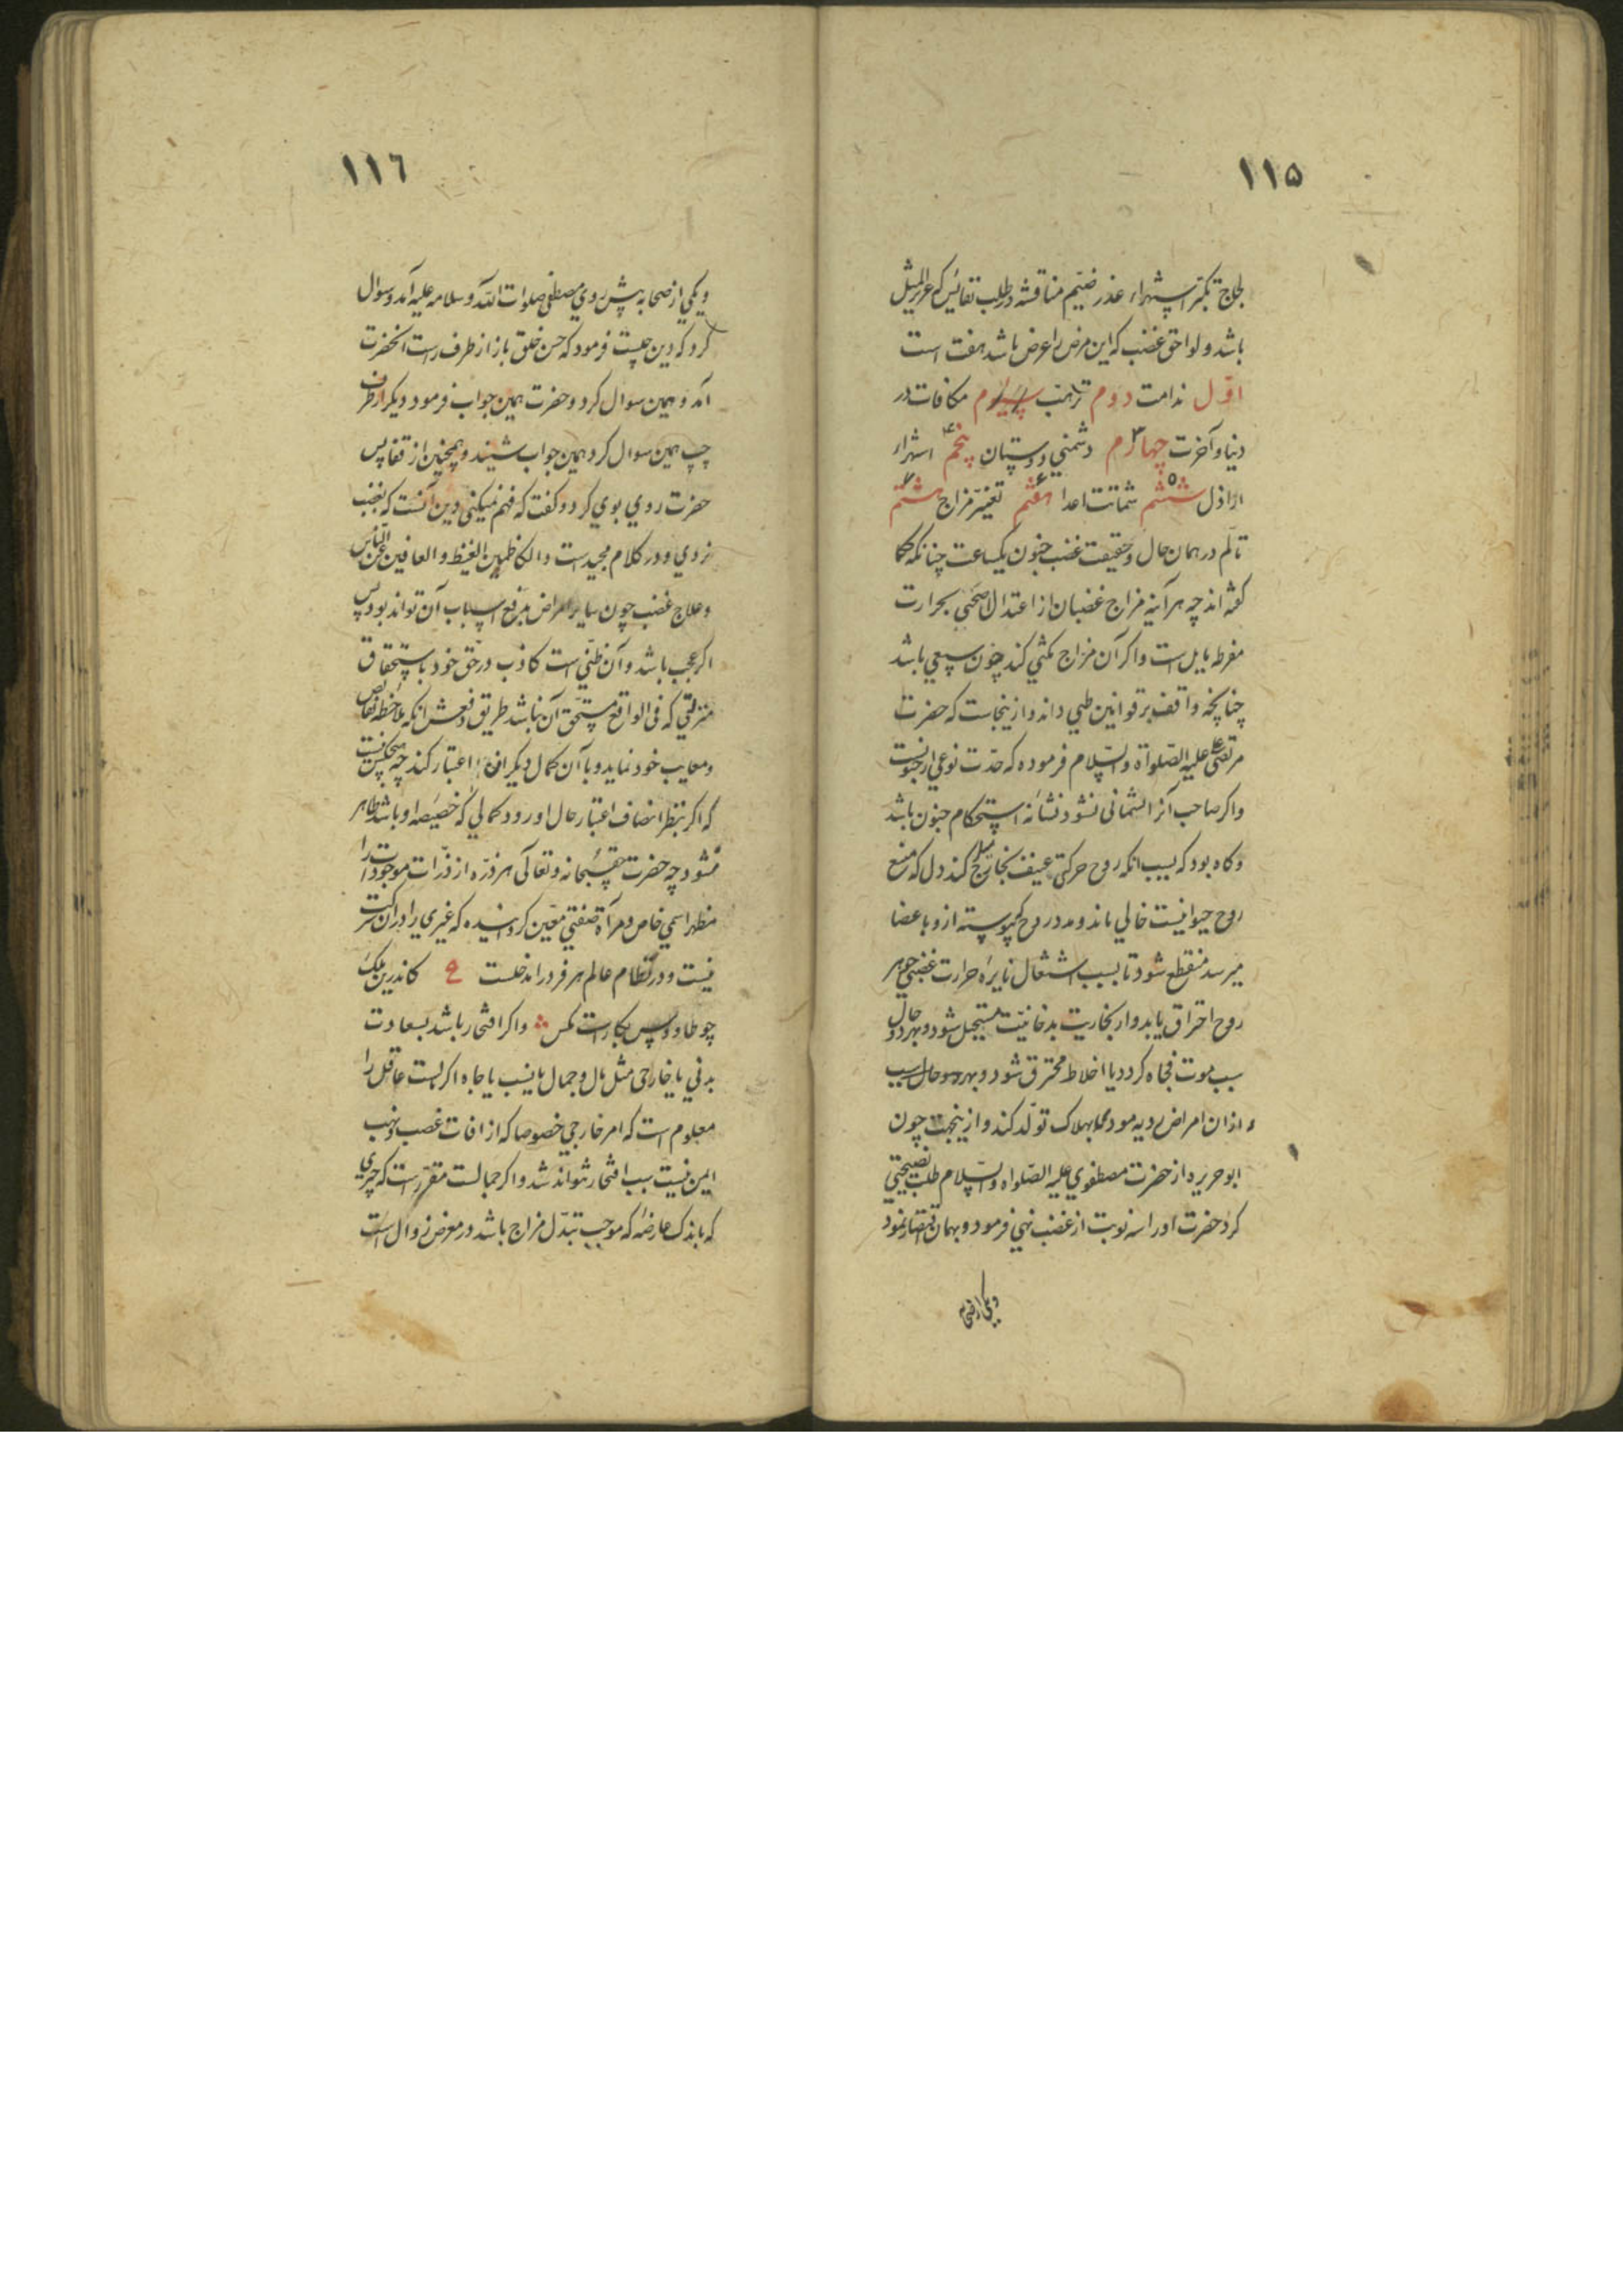 ۱۱۵
لجاج تکبر استهزاء غدر ضیم مناقشه در طلب نفائس که عزیز المثل
باشد و لواحق غضب که این مرض را عرض باشد هفت است
اوّل ندامت دوم سیوم مکافات در
دنیا و آخرت چهارم دشمنی دوستان پنجم استهزاء
اراذل ششم شماتت اعدا هفتم تغیّر مزاج هشتم
تالّم در همان حال و حقیقت غضب جنون یکساعت چنانکه حکما
کفته اند چه هر آینه مزاج غضبان از اعتدال صحّی بحرارت
مفرطه مایل است و اکر آن مزاج مکثی کند چون سبعی باشد
چنانچه واقف بر قوانین طبی داند و ازینجاست که حضرت
مرتضی علیه الصّلواة والسّلام فرموده که حدّت نوعی از جنونست
و اکر صاحب آنرا پشمانی نشود نشانه استحکام جنون باشد
و کاه بود که بسبب انکه روح حرکتی عنیف بخارج کند دل که منبع
روح حیوانیست خالی ماند و مدد روح که پیوسته ازو باعضا
میرسد منقطع شود تا بسبب اشتعال نایره حرارت غضبی جوهر
روح احتراق یابد و از بخاریت بدخانیّت مستحیل شود و بهر دو حال
سبب موت فجاه کردد یا اخلاط محترق شود و
و ازان امراض ردیه مودی بهلاک تولّد کند و ازینجهت چون
ابو حریره از حضرت مصطفوی علیه الصّلواه والسّلام طلب نصیحتی
کرد حضرت او را سه نوبت از غضب نهی فرمود و بهمان اقتصار نمود
و یکی از صحابه
۱۱٦
و یکی از صحابه پیش روی مصطفی صلوات الله و سلامه علیه آمد و سوال
کرد که دین چیست فرمود که حسن خلق باز از طرف راست انحضرت
آمد و همین سوال کرد و حضرت همین جواب فرمود دیکر از طرف
چپ همین سوال کرد همین جواب شنید و همچنین از قفا پس
حضرت روی بوی کرد و کفت که فهم نمیکنی دین آنست که بغضب
نروی و در کلام مجید است والکاظمین الغیظ والعافین عن الناس
و علاج غضب چون سایر امراض برفع اسباب آن تواند بود پس
اکر عجب باشد و آن ظنّی است کاذب در حق خود باستحقاق
منزلتی که فی الواقع مستحق آن نباشد طریق دفعش انکه ملاحظه نقائص
و معایب خود نماید و با آن کمال دیکرانرا اعتبار کند چه هیچکس نیست
که اکر بنظر انصاف اعتبار حال او رود کمالی که خصیصه او باشد ظاهر
نشود چه حضرت حق سبحانه و تعالی هر ذرّه از ذرّات موجودات را
مظهر اسمی خاص و مرآة صفتی معیّن کردانیده که غیری را در ان شرکت
نیست و در نظام عالم هر فرد را مدخلست ع کاندرین ملک
چو طاووس بکارست مکس و اکر افتخار باشد بسعادت
بدنی یا خارجی مثل مال و جمال یا نسب یا جاه اکر مالست عاقل را
معلوم است که امر خارجی خصوصا که از افات غصب و نهب
ایمن نیست سبب افتخار نتواند شد و اکر جمالست مقرّر است که چیزی
که باندک عارضه که موجب تبدّل مزاج باشد در معرض زوال است